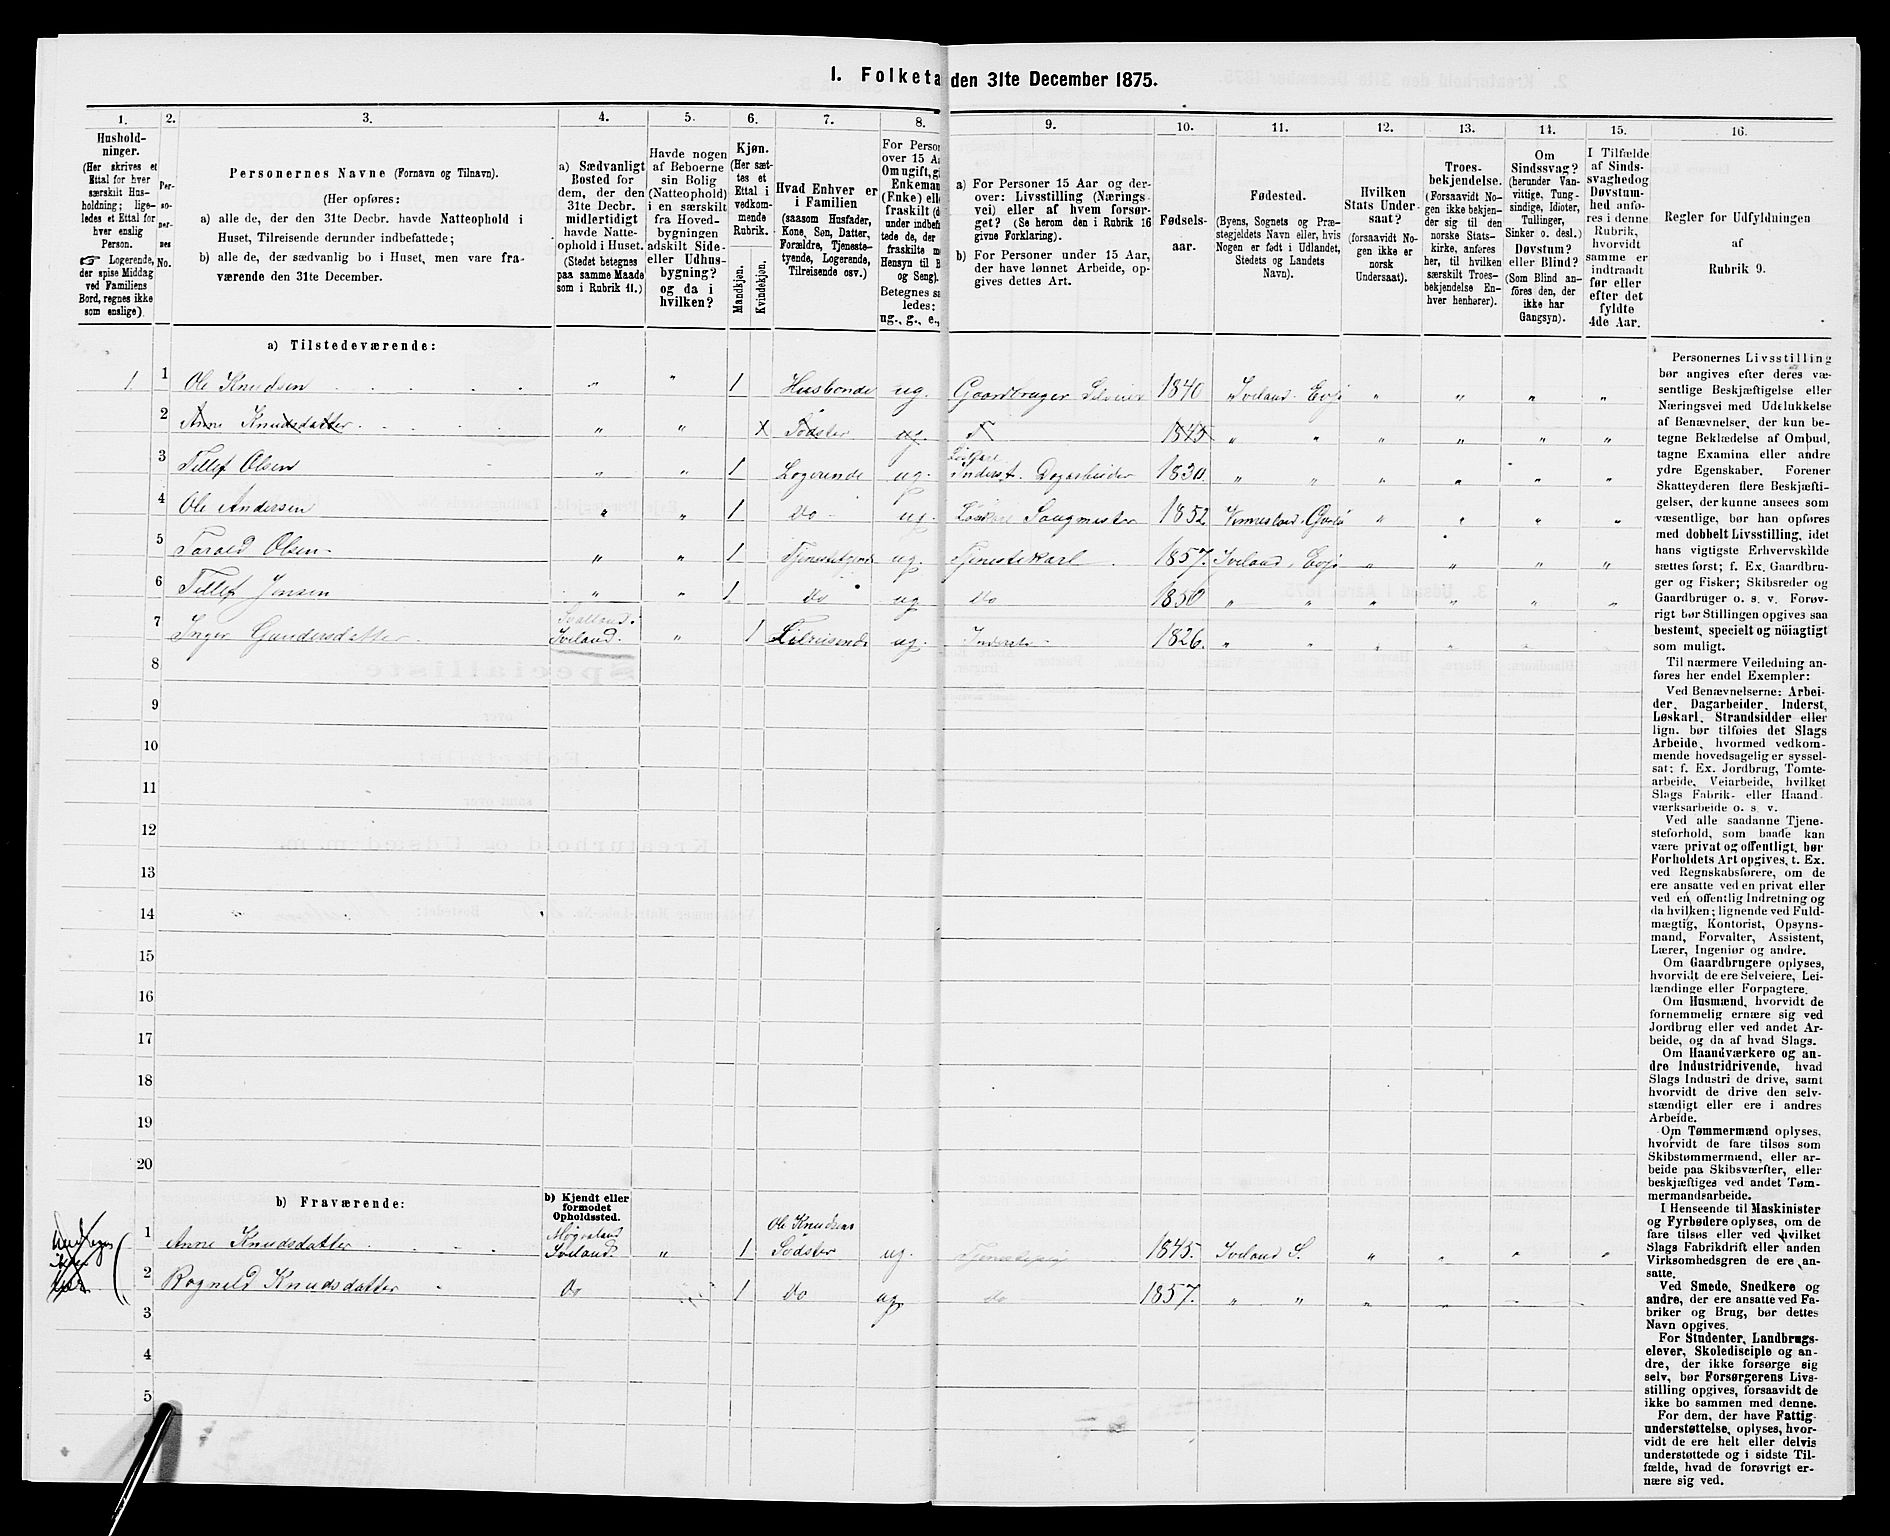 1. Folketa den 31te December 1875.
1. 2. 3. 4. 5. 6. 7. 8. 9. 10. 11. 12. 13. 14. 15. 16.
Hushold-
ninger.
(Her skrives et
Ettal for hver
særskilt Hus-
holdning; lige-
ledes et Ettal for
hver enslig
Person.
☞ Logerende,
der spise Middag
ved Familiens
Bord, regnes ikke
som enslige).
Per-
so-
ner-
nes
No.
Personernes Navne (Fornavn og Tilnavn).
(Her opføres:
a) alle de, der den 31te Decbr. havde Natteophold i
Huset, Tilreisende derunder indbefattede;
b) alle de, der sædvanlig bo i Huset, men vare fra-
værende den 31te December.
a) Sædvanligt
Bosted for
dem, der den
31te Decbr.
midlertidigt
havde Natte-
ophold i Huset.
(Stedet betegnes
paa samme Maade
som i Rubrik 11.)
Havde nogen
af Beboerne
sin Bolig
(Natteophold)
i en særskilt
fra Hoved-
bygningen
adskilt Side-
eller Udhus-
bygning?
og da i
hvilken?
Kjøn.
(Her sæt-
tes et
Ettal i
vedkom-
mende
Rubrik.
Mandkjøn.
Kvindekjøn.
Hvad Enhver er
i Familien
(saasom Husfader,
Kone, Søn, Datter,
Forældre, Tjeneste-
tyende, Logerende,
Tilreisende osv.)
For Perso
over 15 Aa
Om ugift, gi
Enkeman
(Enke) elle
fraskilt (d
under indbef
tede de, der
fraskilte m
Hensyn til B
og Seng).
Betegnes sa
ledes:
ug., g., e.,
a) For Personer 15 Aar og der-
over: Livsstilling (Nærings-
vei) eller af hvem forsør-
get? (Se herom den i Rubrik 16
givne Forklaring).
b) For Personer under 15 Aar,
der have lønnet Arbeide, op-
gives dettes Art.
Fødsels-
aar.
Fødested.
(Byens, Sognets og Præ-
stegjeldets Navn eller, hvis
Nogen er født i Udlandet,
Stedets og Landets
Navn).
Hvilken
Stats Under-
saat?
(forsaavidt No-
gen ikke er
norsk
Undersaat).
Troes-
bekjendelse.
(Forsaavidt No-
gen ikke bekjen-
der sig til den
norske Stats-
kirke, anføres
her, til hvilken
særskilt Troes-
bekjendelse En-
hver henhører).
Om
Sindssvag?
(herunder Van-
vittige, Tung-
sindige, Idioter,
Tullinger,
Sinker o. desl.)
Døvstum?
eller Blind?
(Som Blind an-
føres den, der
ikke har
Gangsyn).
I Tilfælde
af Sinds-
svaghed og
Døvstum-
hed anfø-
res i denne
Rubrik,
hvorvidt
samme er
indtraadt
før eller
efter det
fyldte
4de Aar.
Regler for Udfyldningen
af
Rubrik 9.
a) Tilstedeværende:
1. 1 Ole Knudsen " " 1 Husbonde ug. Gaardbruger Selveier 1840 Iveland Evje " " " "
2 Anne Knudsdatter " " X Søster ug. T 1845 " " " " " "
3 Tellef Olsen " " 1 Logerende ug. Inderst. 1830. " " " " " "
4 Ole Andersen " " 1 Do ug. 1852 " " " "
5 Tarald Olsen " " 1 ug. Tjenestekarl 1857. Iveland, Evje " " " "
6 Tellef Jensen " " 1 Do ug Do 1850 " " " " " "
7 Inger Gundersdatter Iveland. " 1 Tilreisende ug. Inderst 1826. " " " " " "
8
9
10
11
12
13
14
15
16
17
18
19
20
b) Fraværende:
b) Kjendt eller
formodet
Opholdssted.
Ole Knudsens
1 Anne Knudsdatter Iveland " 1 Søster ug. 1845. Iveland S. " " " "
2 Rognild Knudsdatter Do 1 Do ug. do 1857. " " " " " "
3
4
5
Personernes Livsstilling
bør angives efter deres væ-
sentlige Beskjæftigelse eller
Næringsvei med Udelukkelse
af Benævnelser, der kun be-
tegne Beklædelse af Ombud,
tagne Examina eller andre
ydre Egenskaber. Forener
Skatteyderen flere Beskjæfti-
gelser, der kunne ansees som
væsentlige, bør han opføres
med dobbelt Livsstilling, idet
hans vigtigste Erhvervskilde
sættes først; f. Ex. Gaardbru-
ger og Fisker; Skibsreder og
Gaardbruger o. s. v. Forøv-
rigt bør Stillingen opgives saa
bestemt, specielt og nöiagtigt
som muligt.
Til nærmere Veiledning an-
føres her endel Exempler:
Ved Benævnelserne: Arbei-
der, Dagarbeider, Inderst,
Løskarl, Strandsidder eller
lign. bør tilføies det Slags
Arbeide, hvormed vedkom-
mende hovedsagelig er syssel-
sat; f. Ex. Jordbrug, Tomte-
arbeide, Veiarbeide, hvilket
Slags Fabrik- eller Haand-
værksarbeide o. s. v.
Ved alle saadanne Tjene-
steforhold, som baade kan
være privat og offentligt, bør
Forholdets Art opgives, t. Ex.
ved Regnskabsførere, om de
ere ansatte ved en privat eller
ved en offentlig Indretning og
da hvilken; lignende ved Fuld-
mægtig, Kontorist, Opsyns-
mand, Forvalter, Assistent,
Lærer, Ingeniør og andre.
Om Gaardbrugere oplyses,
hvorvidt de ere Selveiere, Lei-
lændinge eller Forpagtere.
Om Husmænd, hvorvidt de
fornemmelig ernære sig ved
Jordbrug eller ved andet Ar-
beide, og da af hvad Slags.
Om Haandværkere og an-
dre Industridrivende, hvad
Slags Industri de drive, samt
hvorvidt de drive den selv-
stændigt eller ere i andres
Arbeide.
Om Tømmermænd oplyses,
hvorvidt de fare tilsøs som
Skibstømmermænd, eller ar-
beide paa Skibsværfter, eller
beskjæftiges ved andet Tøm-
mermandsarbeide.
I Henseende til Maskinister
og Fyrbødere oplyses, om de
fare tilsøs eller ved hvilket
Slags Fabrikdrift eller anden
Virksomhedsgren de ere an-
satte.
Ved Smede, Snedkere og
andre, der ere ansatte ved Fa-
briker og Brug, bør dettes
Navn opgives.
For Studenter, Landbrugs-
elever, Skoledisciple og an-
dre, der ikke forsørge sig
selv, bør Forsørgerens Livs-
stilling opgives, forsaavidt de
ikke bo sammen med denne.
For dem, der have Fattig-
understøttelse, oplyses, hvor-
vidt de ere helt eller delvis
understøttede og i sidste Til-
fælde, hvad de forøvrigt er-
nære sig ved.